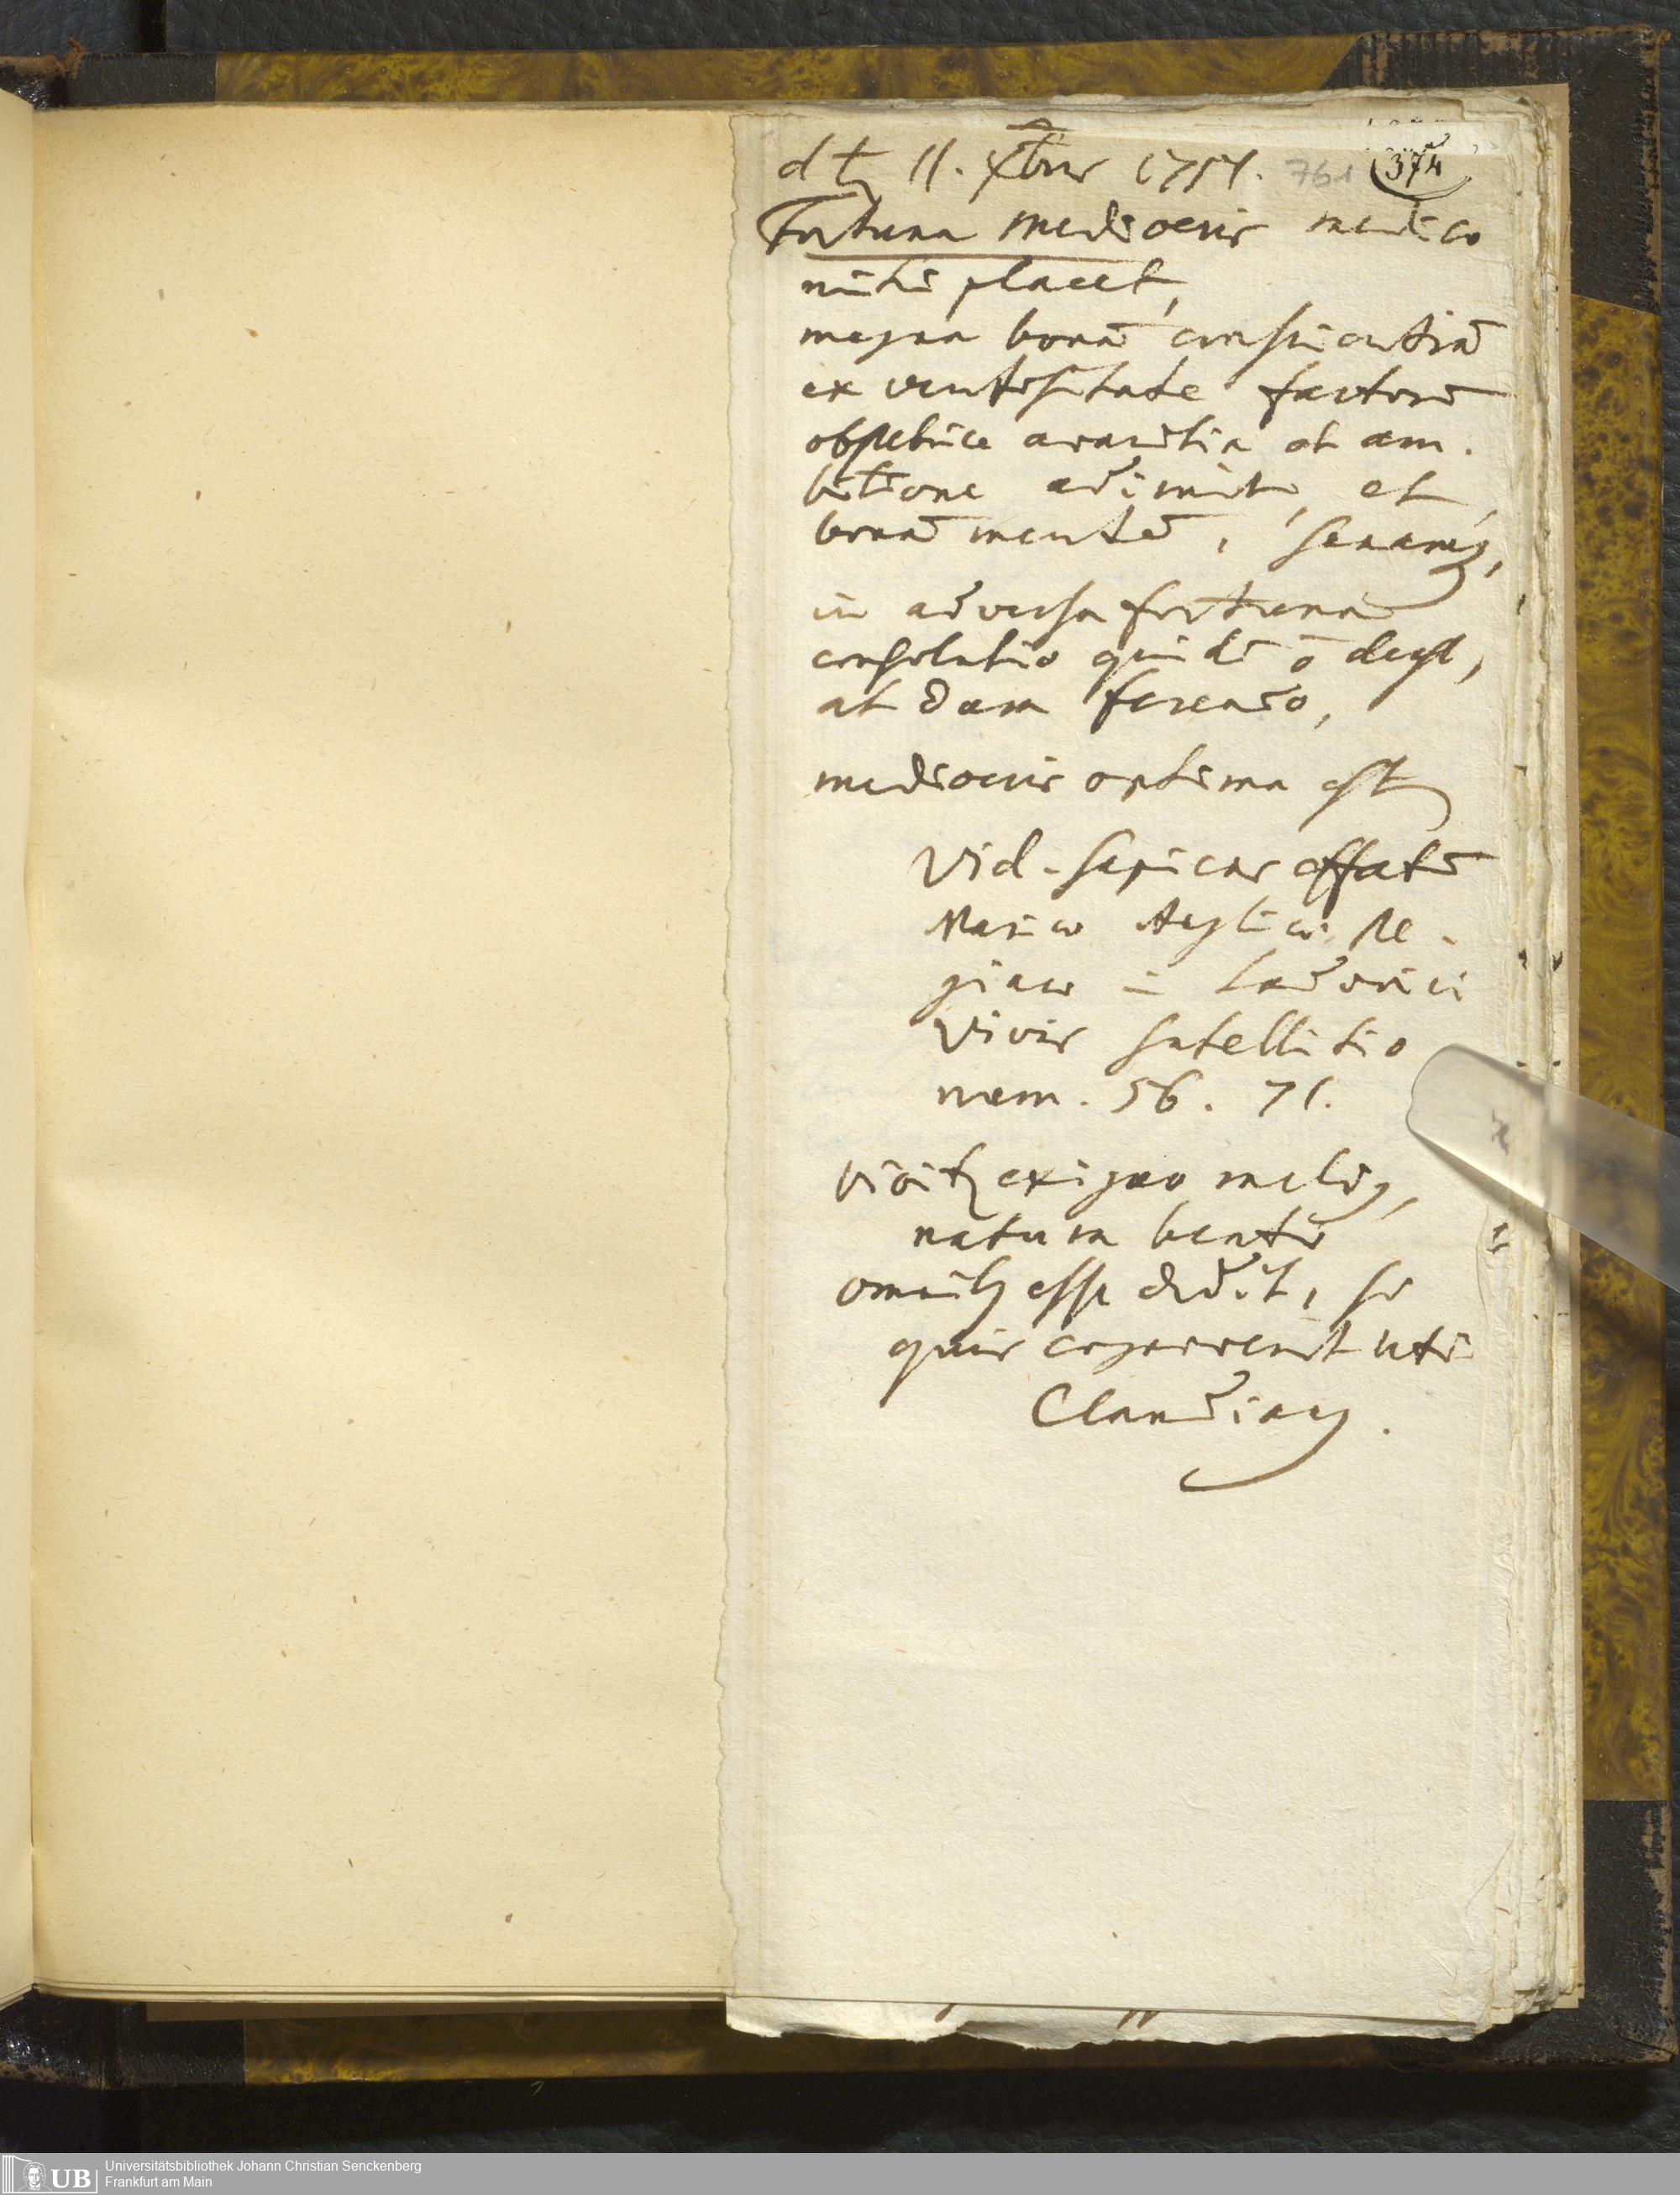 d t. 11. Xbris 1751. 761 374
Fortuna mediocris medico
mihi placet,
magna bonā conscientiā
ex ventositate factorū
obstetrice avaritia et am-
bitione adimit, et
bonā mentē, sanāq,
in adversa fortuna
consolatio quidē ō deest,
at dum ferendo,
mediocris optima est
Vid. sapiens effatū
Marico Anglico Re-
giaco in Ludovici
Vivis Satellitio
num. 56. 71.
vivitʒ exiguo meliq,
natura beatis
omnibʒ esse dedit, si
quis cognoverit uti
Claudianq.
UB
Universitätsbibliothek Johann Christian Senckenberg
Frankfurt am Main